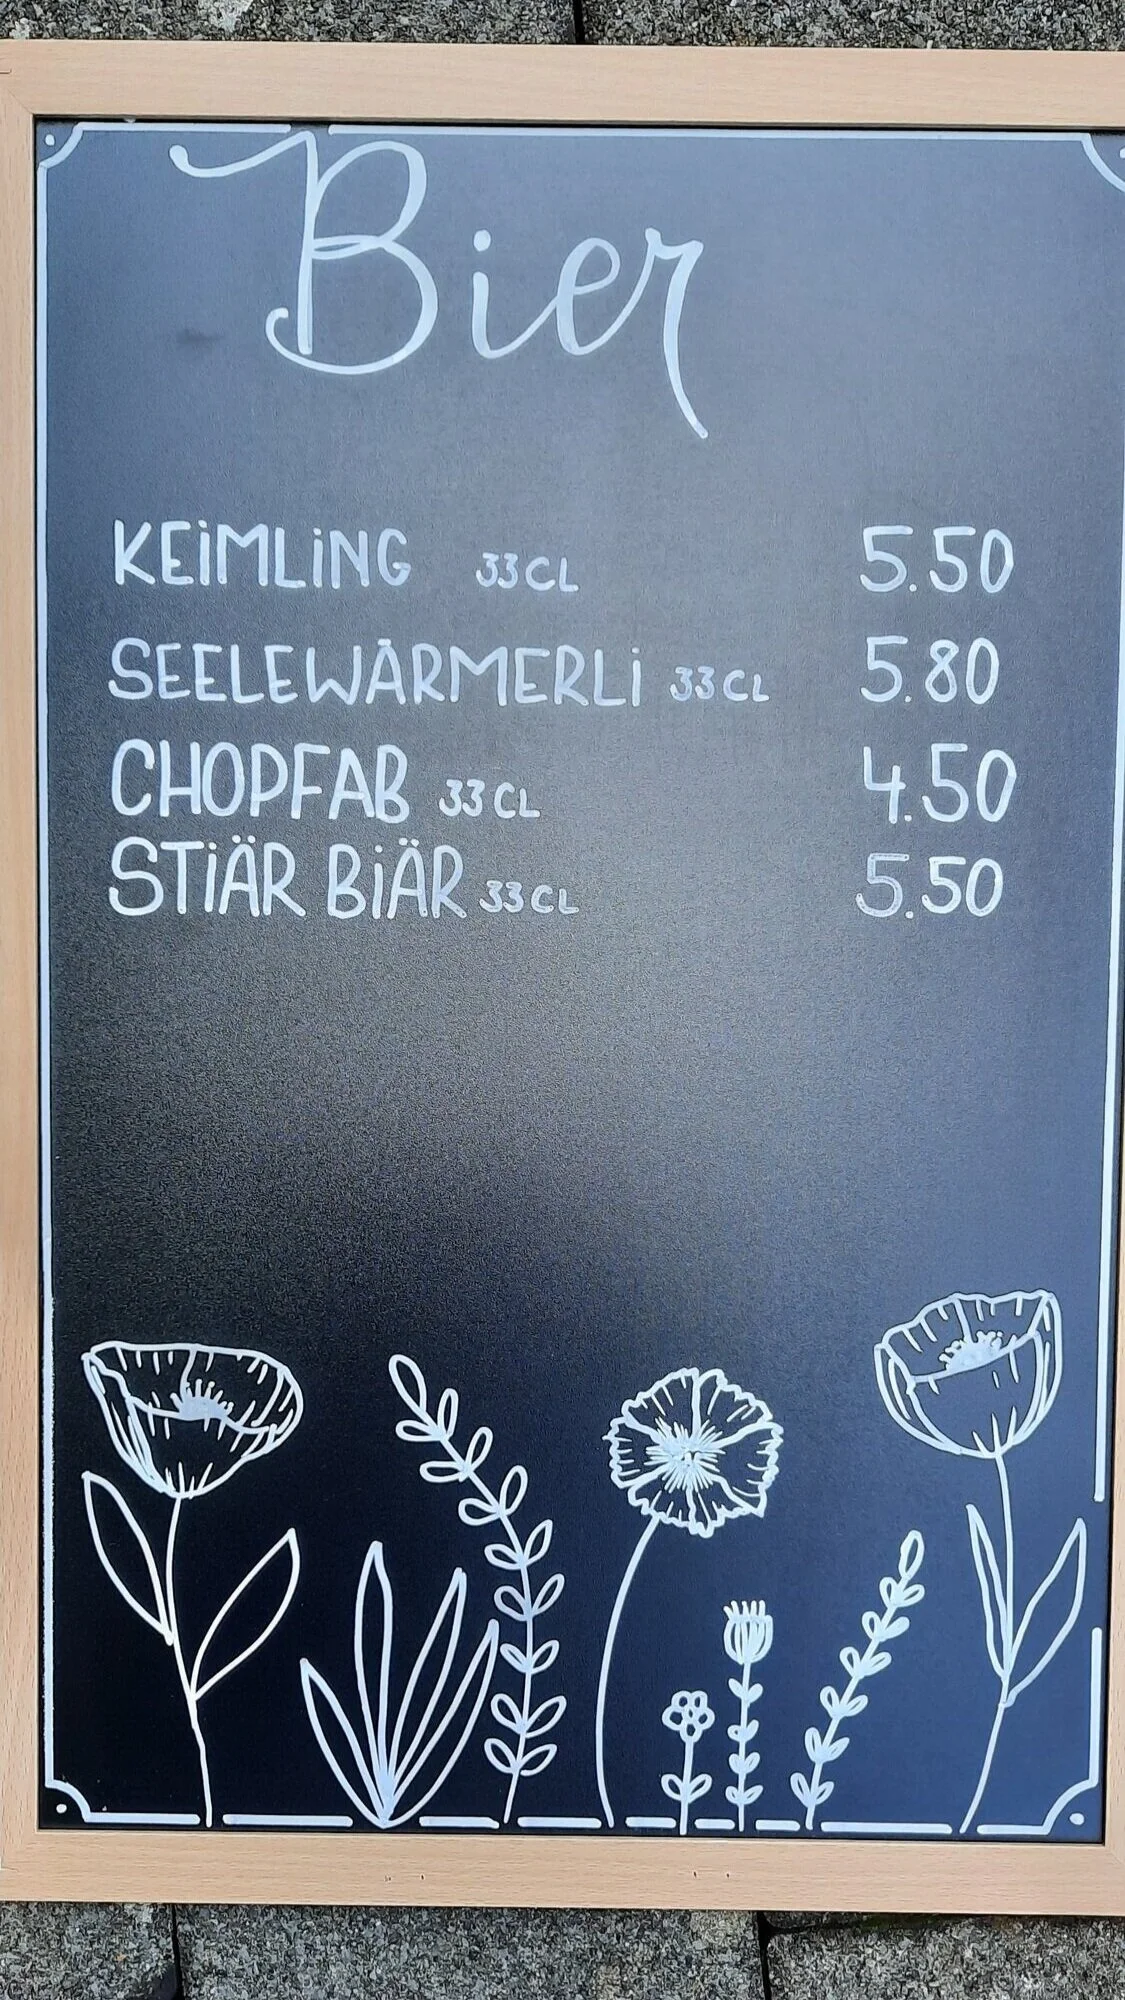 Bier
KEiMLiNG 33CL 5.50
SEELEWÄRMERLi 33CL 5.80
CHOPFAB 33CL 4.50
STiÄR BiÄR 33CL 5.50